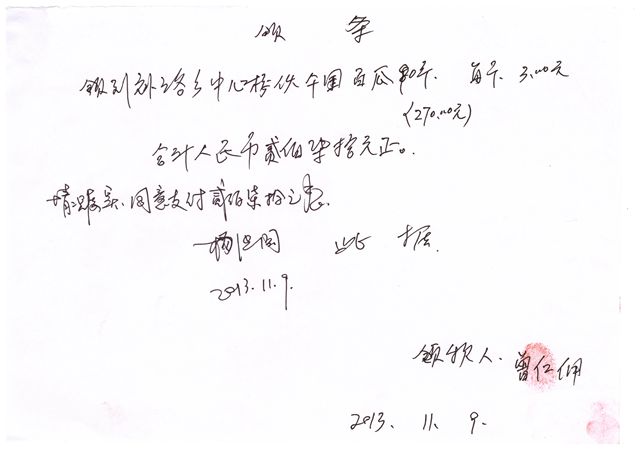 领 条
领到 各乡中心校伙 白瓜90斤. 每斤 3.00元
(270.00元)
合计人民币贰佰柒拾元正。
情况属实.同意支付贰佰柒拾元
此 据.
2013.11.9.
领款人.曾仁佣
2013. 11. 9.